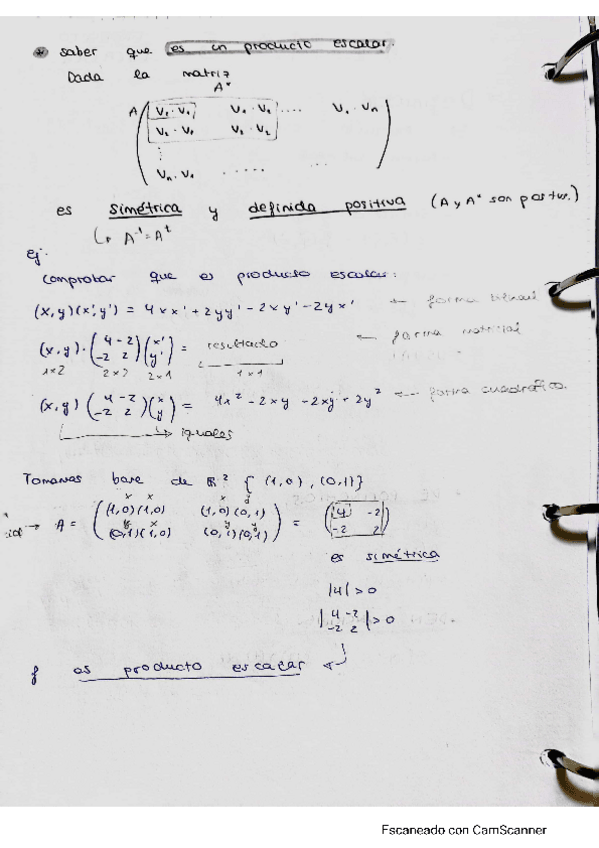 * saber que es un producto escalar.
Dada la matriz
A*
A ( V₁·V₁ V₁·V₂ .... V₁·Vₙ )
V₂·V₁ V₂·V₂
⋮ ...
Vₙ·V₁ .....
es simétrica y definida positiva (A y A* son positiv.)
↳ A⁻¹=Aᵗ
Ej.
comprobar que es producto escalar:
(x,y)(x',y') = 4xx' + 2yy' - 2xy' - 2yx' ← forma bilineal
(x,y)·( 4 -2 ; -2 2 )( x' ; y' ) = resultado ← forma matricial
1x2 2x2 2x1 1x1
(x,y)( 4 -2 ; -2 2 )( x ; y ) = 4x² - 2xy - 2xy + 2y² ← forma cuadrática.
→ iguales
Tomamos base de ℝ² { (1,0), (0,1) }
x x x y
→ A = ( (1,0)(1,0) (1,0)(0,1) ; (0,1)(1,0) (0,1)(0,1) ) = ( 4 -2 ; -2 2 )
y x y y
es simétrica
|4| > 0
| 4 -2 ; -2 2 | > 0
f es producto escalar ←
Escaneado con CamScanner